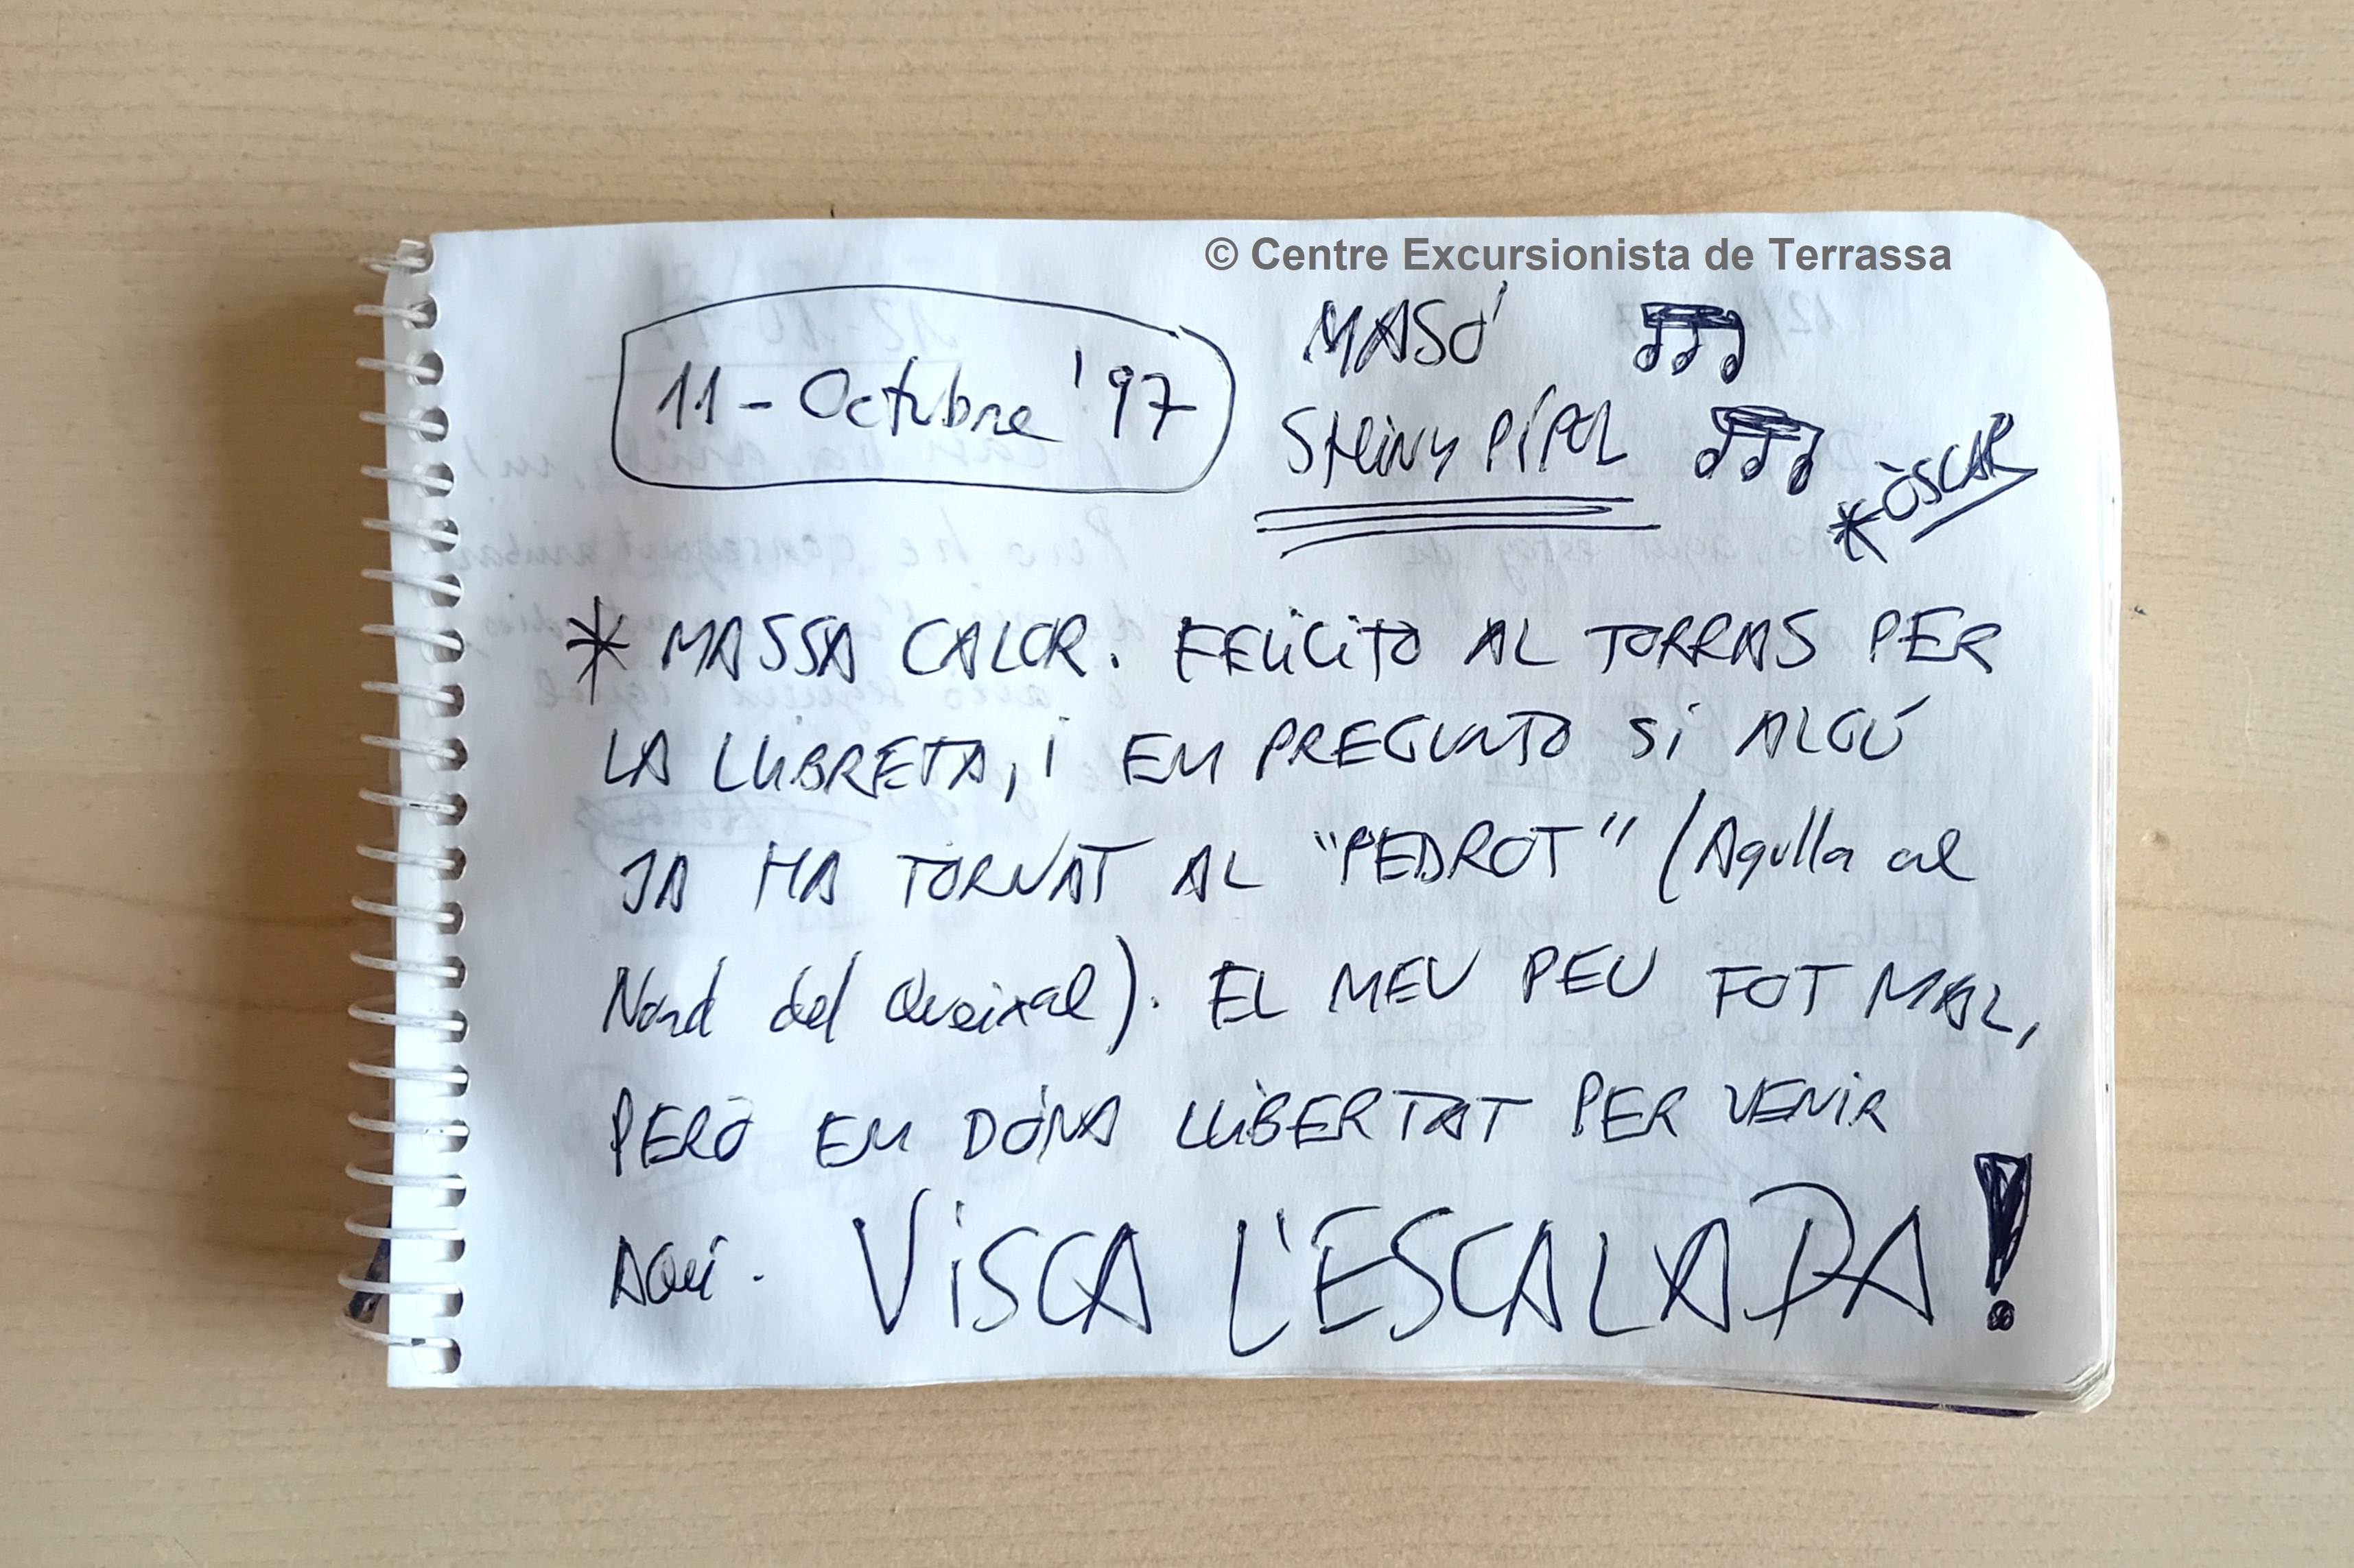 © Centre Excursionista de Terrassa
11 - Octubre '97
MASÓ
SHINY PÍPOL
* ÒSCAR
* MASSA CALOR. FELICITO AL TORRAS PER
LA LLIBRETA, I EM PREGUNTO SI ALGÚ
JA HA TORNAT AL "PEDROT" (Agulla al
Nord del Queixal). EL MEU PEU FOT MAL,
PERÒ EM DÓNA LLIBERTAT PER VENIR
AQUÍ. VISCA L'ESCALADA!